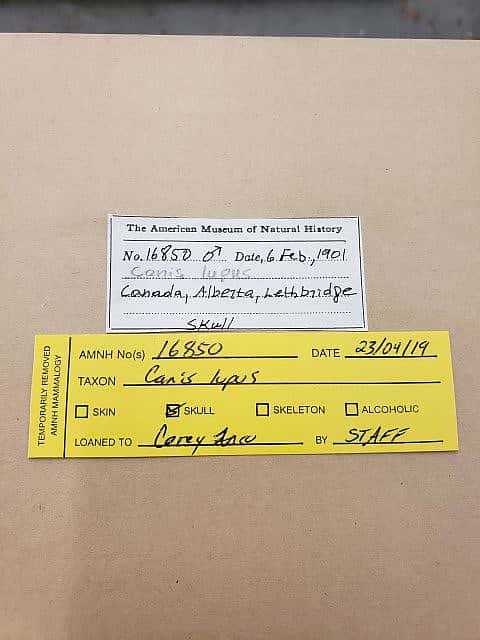 The American Museum of Natural History
No. 16850 ♂ Date, 6 Feb., 1901
Canis lupus
Canada, Alberta, Lethbridge
Skull
TEMPORARILY REMOVED
AMNH MAMMALOGY
AMNH No(s) 16850 DATE 23/04/19
TAXON Canis lupus
SKIN SKULL SKELETON ALCOHOLIC
LOANED TO BY STAFF